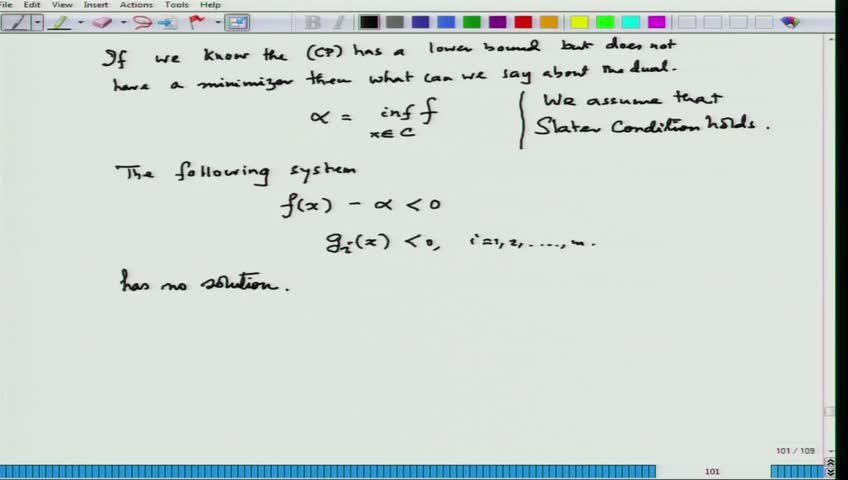 File Edit View Insert Actions Tools Help
If we know the (CP) has a lower bound but does not
have a minimizer then what can we say about the dual.
α = inf f
x∈C
We assume that
Slater Condition holds.
The following system
f(x) - α < 0
gᵢ(x) < 0, i=1,2,....,m.
has no solution.
101 / 109
101